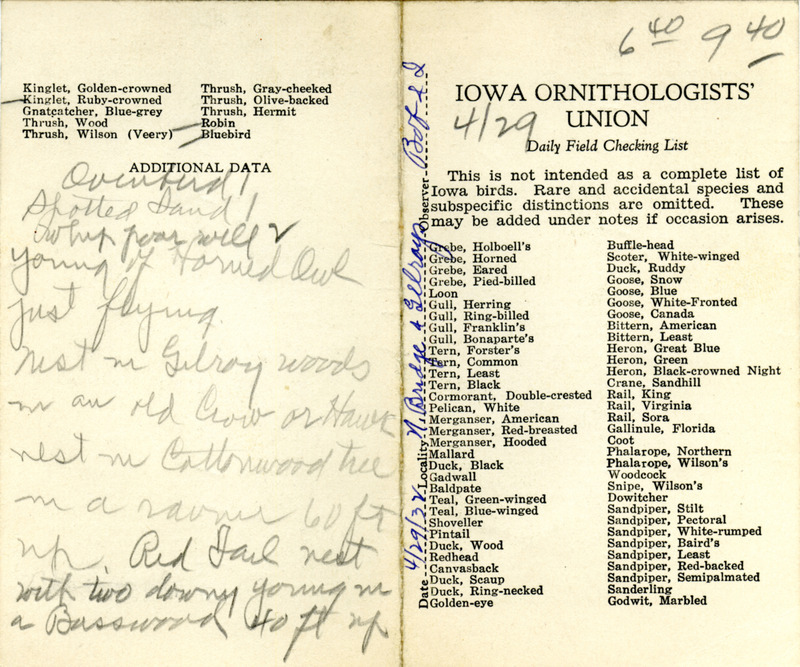 Kinglet, Golden-crowned
Kinglet, Ruby-crowned
Gnatcatcher, Blue-grey
Thrush, Wood
Thrush, Wilson (Veery)
Thrush, Gray-cheeked
Thrush, Olive-backed
Thrush, Hermit
Robin
Bluebird
ADDITIONAL DATA
Ovenbird!
Spotted Sand!
Whip poor will ✓
young of Horned Owl
just flying.
Nest in Gilroy woods
in an old Crow or Hawk
nest in Cottonwood tree
in a ravine 60 ft
up. Red Tail nest
with two downy young in
a Basswood 40 ft up
6 40 9 40
IOWA ORNITHOLOGISTS'
UNION
4/29
Daily Field Checking List
This is not intended as a complete list of
Iowa birds. Rare and accidental species and
subspecific distinctions are omitted. These
may be added under notes if occasion arises.
Date 4/29/32 Locality N Bridge & Gilroy Observer
Grebe, Holboell's
Grebe, Horned
Grebe, Eared
Grebe, Pied-billed
Loon
Gull, Herring
Gull, Ring-billed
Gull, Franklin's
Gull, Bonaparte's
Tern, Forster's
Tern, Common
Tern, Least
Tern, Black
Cormorant, Double-crested
Pelican, White
Merganser, American
Merganser, Red-breasted
Merganser, Hooded
Mallard
Duck, Black
Gadwall
Baldpate
Teal, Green-winged
Teal, Blue-winged
Shoveller
Pintail
Duck, Wood
Redhead
Canvasback
Duck, Scaup
Duck, Ring-necked
Golden-eye
Buffle-head
Scoter, White-winged
Duck, Ruddy
Goose, Snow
Goose, Blue
Goose, White-Fronted
Goose, Canada
Bittern, American
Bittern, Least
Heron, Great Blue
Heron, Green
Heron, Black-crowned Night
Crane, Sandhill
Rail, King
Rail, Virginia
Rail, Sora
Gallinule, Florida
Coot
Phalarope, Northern
Phalarope, Wilson's
Woodcock
Snipe, Wilson's
Dowitcher
Sandpiper, Stilt
Sandpiper, Pectoral
Sandpiper, White-rumped
Sandpiper, Baird's
Sandpiper, Least
Sandpiper, Red-backed
Sandpiper, Semipalmated
Sanderling
Godwit, Marbled